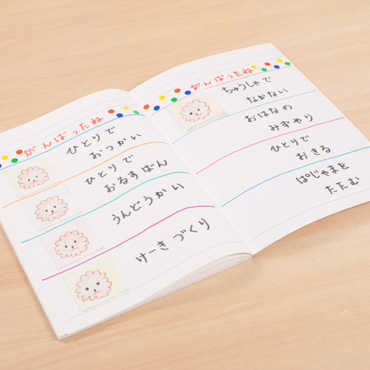 がんばったね
ひとりで
おつかい
ひとりで
おるすばん
うんどうかい
けーきづくり
がんばったね
ちゅうしゃで
なかない
おはなの
みずやり
ひとりで
おきる
ぱじゃまを
たたむ